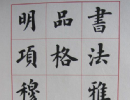 書法雅
品格
明項穆